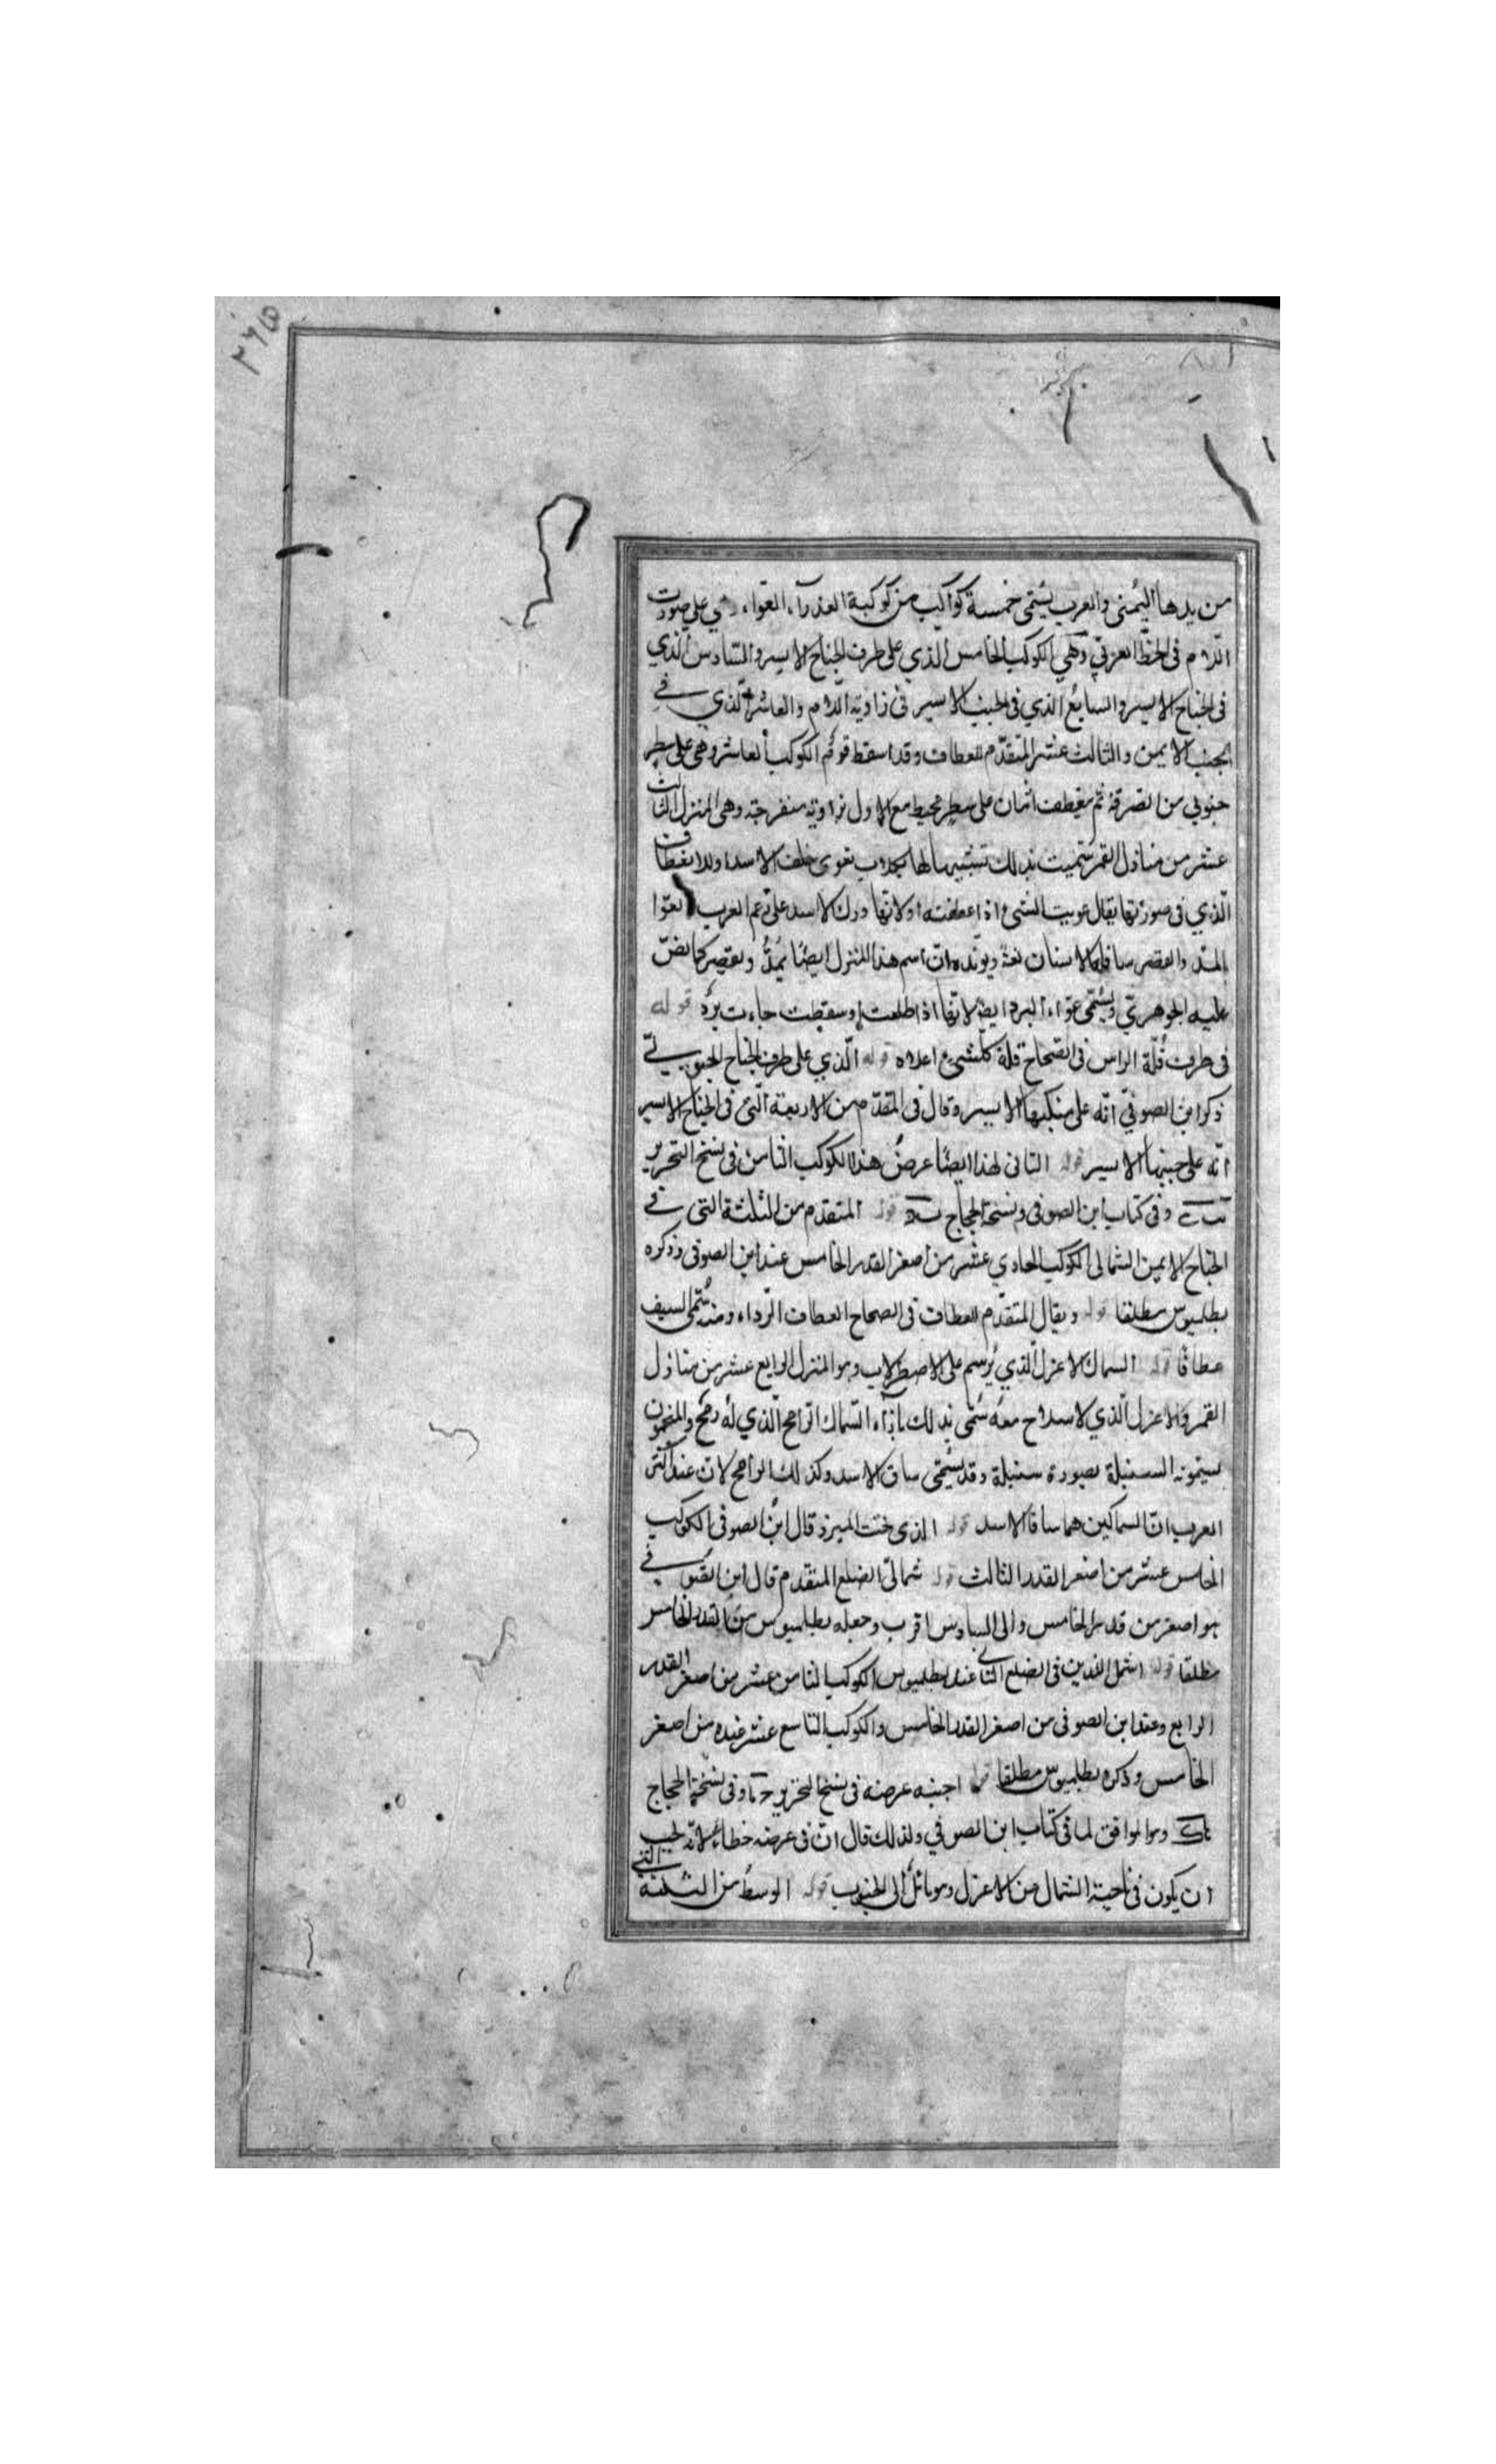 ٢٦٥
من يدها اليمنى والعرب يسمى خمسة كواكب من كوكبة العذرآء العواء وهي على صورت
اللام فى الخط العربي وهي الكوكب الخامس الذي على طرف الجناح الايسر والسادس الذي
فى الجناح الايسر والسابع الذي فى الجنب الايسر فى زاوية اللام والعاشر الذي فى
الجنب الايمن والثالث عشر المتقدم للعطاف وقد اسقط قوم الكوكب العاشر وهى على سطر
جنوبي من الصرفة ثم ينعطف اثنان على سطر يحيط مع الاول بزاوية منفرجة وهى المنزل الثالث
عشر من منازل القمر سميت بذلك تشبيها لها بكلاب تعوى خلف الاسد او للانعطاف
الذي فى صورتها يقال عويت الشئ اذا عطفته او لانها ورك الاسد على زعم العرب العوّا
بالمد والقصر سافلة الانسان لغة ويؤيده ان اسم هذا المنزل ايضا يمدّ ويقصر كما نصّ
عليه الجوهري ويسمى عوّاء البرد ايضا لانها اذا طلعت او سقطت جاءت ببرد قوله
فى طرف قلّة الراس فى الصحاح قلة كلشئ اعلاه قوله الّذي على طرف الجناح الجنوبي
ذكر ابن الصوفي انه على منكبها الايسر وقال فى المتقدّم من الاربعة الّتى فى الجناح الايسر
انه على جنبها الايسر قوله التانى لهذا ايضا عرض هذا الكوكب الثامن فى نسخ التحرير
وفى كتاب ابن الصوفى ونسخة الحجاج قوله المتقدم من الثلثة التى فى
الجناح الايمن الشمالى الكوكب الحادي عشر من اصغر القدر الخامس عند ابن الصوفى وذكره
بطلميوس مطلقا قوله ويقال المتقدّم للعطاف فى الصحاح العطاف الرّداء ومنه سمى السيف
عطافا قوله السماك الاعزل الّذي يرسم على الاصطرلاب وهو المنزل الرابع عشر من منازل
القمر والاعزل الّذي لا سلاح معه سمى بذلك بازآء السّماك الرامح الّذي له رمح والمنجمون
يسمونه السنبلة بصورة سنبلة وقد يسمّى ساق الاسد وكذلك الرامح لان عند اكثر
العرب انّ السماكين هما ساقا الاسد قوله الذى تحت الميزر قال ابن الصوفى الكوكب
الخامس عشر من اصغر القدر الثالث قوله شمالى الضلع المتقدم قال ابن الصوفى
هو اصغر من قدر الخامس والى السادس اقرب وجعله بطلميوس من القدر الخامس
مطلقا قوله اشمل اللذين فى الضلع التالى عند بطلميوس الكوكب الثامن عشر من اصغر القدر
الرابع وعند ابن الصوفى من اصغر القدر الخامس والكوكب التاسع عشر عنده من اصغر
الخامس وذكره بطلميوس مطلقا قوله اجنبه عرضه فى نسخ التحرير وفى نسخة الحجاج
وهو الموافق لما فى كتاب ابن الصوفي ولذلك قال انّ فى عرضه خطاء لانه يجب
ان يكون فى ناحية الشمال من الاعزل وهو مائل الى الجنوب قوله الوسط من الثلثة التى